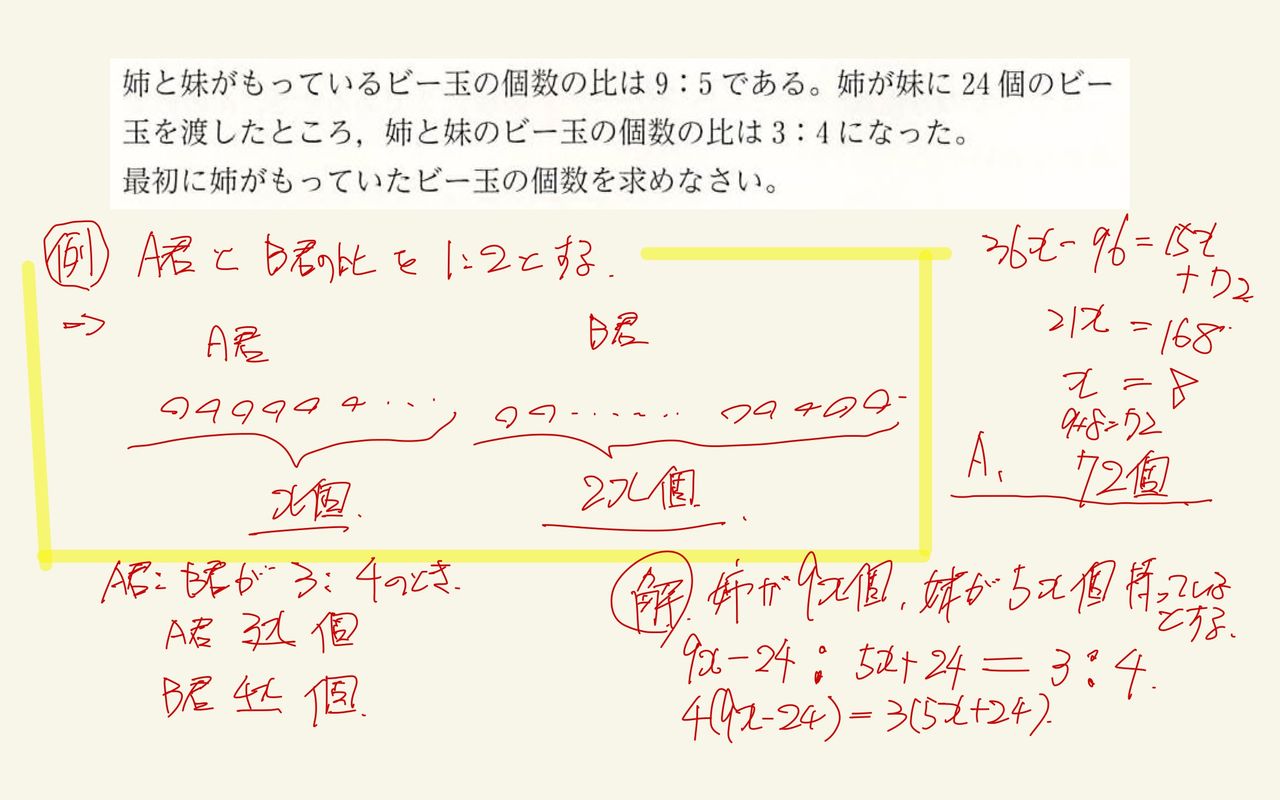 姉と妹がもっているビー玉の個数の比は9：5である。姉が妹に24個のビー
玉を渡したところ，姉と妹のビー玉の個数の比は3：4になった。
最初に姉がもっていたビー玉の個数を求めなさい。
例 A君とB君の比を1:2とする.
⇒
A君 B君
x個. 2x個.
A君:B君が3:4のとき.
A君 3x個
B君 4x個.
解 姉が9x個,妹が5x個持っている
とする.
9x-24:5x+24=3:4.
4(9x-24)=3(5x+24).
36x-96=15x
+72
21x=168
x=8
9×8=72
A. 72個